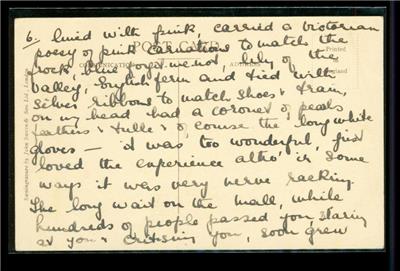 6. lined with pink, carried a Victorian
posey of pink carnations to match the
frock, blue forget-me-not, lily of the
valley, English fern and tied with
silver ribbons to match shoes & train,
on my head had a coronet of pearls
feathers & tulle & of course the long white
gloves — it was too wonderful, just
loved the experience altho' in some
ways it was very nerve racking.
The long wait on the Mall, while
hundreds of people passed you, staring
at you & critising you, soon grew
POST CARD
Printed
in
England